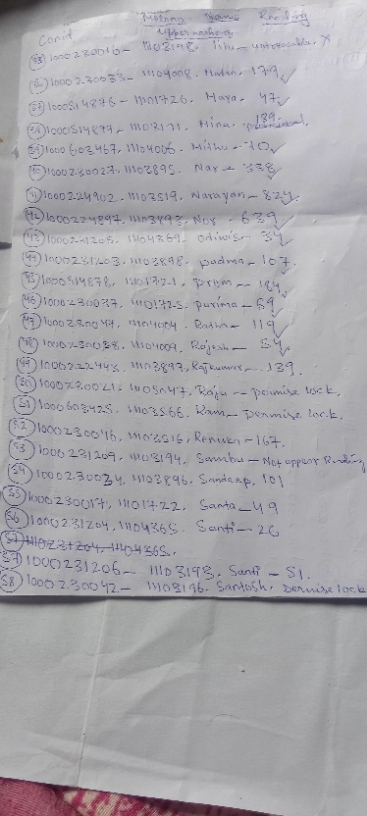 Conid Meter No Name Reading
33 1000230016 - 11103198. Titu - untraceable. X
1000230033 - 11104008. Nutan - 179 ✓
37 1000514876 - 11101726. Maya. 47 ✓
38 1000514877 - 11103171. Mina 139
39 1000603467. 11104006. Mithu - 70 ✓
40 1000230027 - 11103895. Nar - 338 ✓
41 1000224902. 11103519. Narayan - 824 ✓
42 1000224897. 11103893. Nor - 639 ✓
43 1000231205. 11104369. 34 ✓
44 1000231203. 11103898. padma - 107 ✓
45 1000514878. 1110172-1. 184 ✓
46 1000230037. 11101725. purima - 69 ✓
47 1000230047. 11104004. 119 ✓
48 1000230038. 11104009. Rajesh - 54 ✓
49 1000222448. 11103897. Rajkumar - 139.
50 1000230021. 11105047. Raju - permise lock.
51 1000603425. 11103566. Ram - permise lock.
52 1000230046. 11103516. Renuka - 167.
53 1000231209. 11103194. Sambu - Not appear Reading
54 1000230034. 11103896. Sandeep, 101
55 1000230017, 11101722. Santa - 49
56 1000231204, 11104365. Santi - 26
57 1000231204, 11104365.
57 1000231206 - 11103193. Santi - 51.
58 1000230042 - 11103196. Santosh. permise lock